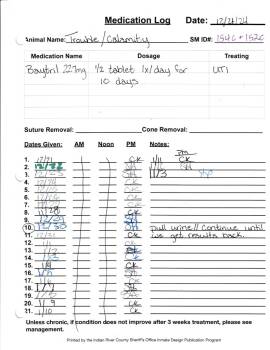 Medication Log Date: 12/21/24
Animal Name: Trouble/Calamity SM ID#: 154C + 152C
Medication Name Dosage Treating
Baytril 22.7mg 1/2 tablet 1x/day for UTI
10 days
Suture Removal: Cone Removal:
Dates Given: AM Noon PM Notes: PM
1. 12/21 CK 1/1 CK
2. 12/22 SH 1/2 SH
3. 12/23 SH 1/3
4. 12/24 CK
5. 12/25 CK
6. 12/26 CK
7. 12/27 CK
8. 12/28 CK
9. 12/29 SH
10. 12/30 SH pull urine // continue until
11. 12/31 CK we get results back.
12. 1/1 CK
13. 1/2 SH
14. 1/3
15. 1/4 CK
16. 1/5
17. 1/6 SH
18. 1/7 SH
19. 1/8
20. 1/9 CK
21. 1/10 CK
Unless chronic, if condition does not improve after 3 weeks treatment, please see
management.
Printed by the Indian River County Sheriff's Office Inmate Design Publication Program